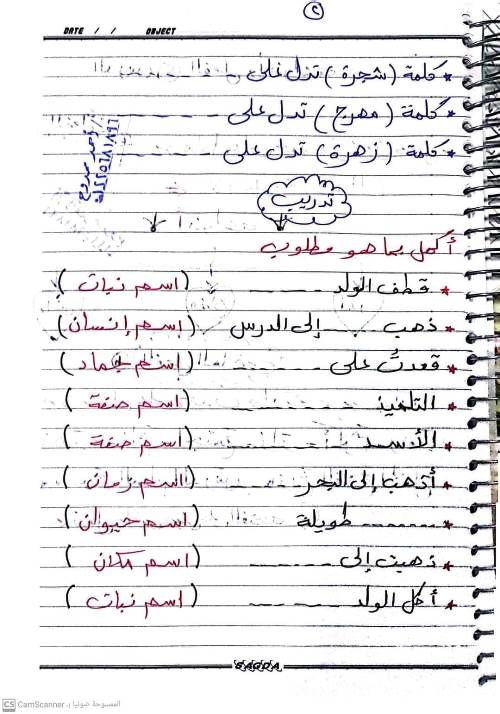 ٢
DATE / / OBJECT
* كلمة (شجرة) تدل على
* كلمة (مهرج) تدل على ـ ـ ـ ـ ـ ـ
* كلمة (زهرة) تدل على ـ ـ ـ ـ ـ ـ
تدريب
أكمل بما هو مطلوب
* قطف الولد ـ ـ ـ ـ ـ ـ (اسم نبات)
* ذهب ـ ـ ـ ـ ـ إلى الدرس (اسم إنسان)
* قعدتُ على ـ ـ ـ ـ ـ ـ (اسم جماد)
* التلميذ ـ ـ ـ ـ ـ ـ (اسم صفة)
* الأسد ـ ـ ـ ـ ـ ـ (اسم صفة)
* أذهب إلى البحر ـ ـ ـ ـ ـ (اسم زمان)
* ـ ـ ـ ـ ـ طويلة (اسم حيوان)
* ذهبت إلى ـ ـ ـ ـ ـ (اسم مكان)
* أكل الولد ـ ـ ـ ـ ـ (اسم نبات)
SAQQA
CS CamScanner الممسوحة ضوئيا بـ